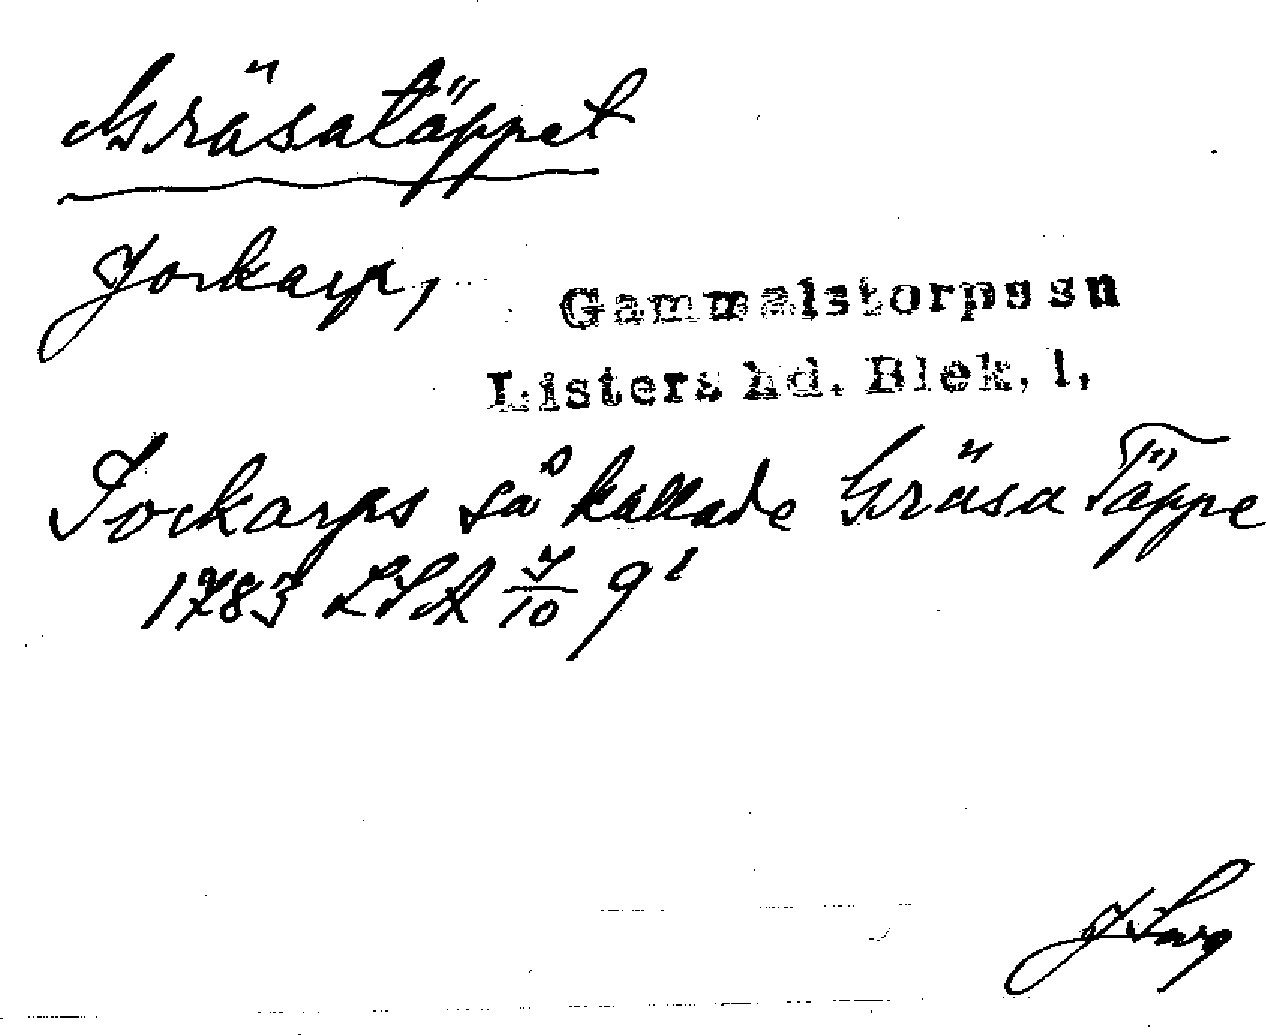 Gräsatäppet
Jorkarp,
Gammalstorps sn
Listers hd. Blek. l.
Jockarps så kallade Gräsa Täppe
1783 LSA 7/10 9¹